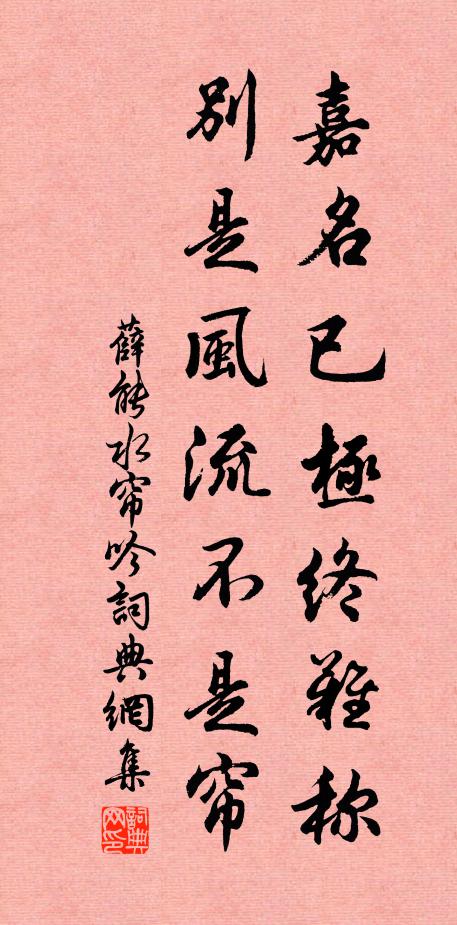 嘉名已極終難称
別是風流不是帘
薛能水帘吟詞典網集
詞典网印